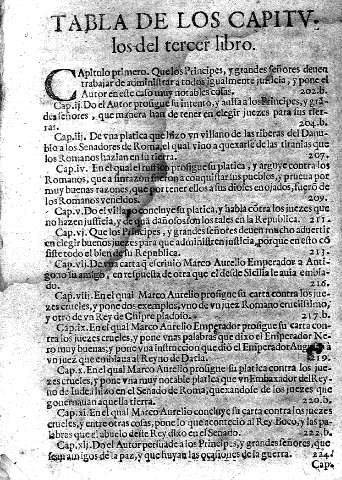 TABLA DE LOS CAPITV-
los del tercer libro.
CApitulo primero. Que los Principes, y grandes señores deuen
trabajar de administrar a todos igualmente justicia, y pone el
Autor en este caso muy notables cosas. 202.b.
Cap.ij. Do el Autor prosigue su intento, y auisa a los Principes, y grã-
des señores, que manera han de tener en elegir juezes para sus tier-
ras. 204.b.
Cap.iij. De vna platica que hizo vn villano de las riberas del Danu-
bio a los Senadores de Roma, el qual vino a quexarse de las tiranias que
los Romanos hazian en su tierra. 207.
Cap.iv. En el qual el villano prosigue su platica, y arguye contra los
Romanos, que a sinrazon fueron a conquistar sus pueblos, y prueua por
muy buenas razones, que por tener ellos a sus dioses enojados, fuerõ de
los Romanos vencidos. 209.
Cap.v. Do el villano concluye su platica, y habla cõtra los juezes que
no hazen justicia, y de quã dañosos son los tales en la Republica. 211.
Cap.vj. Que los Principes, y grandes señores deuen mucho aduertir
en elegir buenos juezes para que administren justicia, porque en esto cõ
siste todo el bien de su Republica. 213.
Cap.vij. De vna carta que escriuio Marco Aurelio Emperador a Anti-
gono su amigo, en respuesta de otra que el desde Sicilia le auia embia-
do. 216.
Cap.viij. En el qual Marco Aurelio prosigue su carta contra los jue-
zes crueles, y pone dos exemplos, vno de vn juez Romano cruelissimo,
y otro de vn Rey de Chipre piadoso. 217.b.
Cap.ix. En el qual Marco Aurelio Emperador prosigue su carta con-
tra los juezes crueles, y pone vnas palabras que dixo el Emperador Ne-
ro muy buenas, y pone vna instruccion que dio el Emperador Augusto a
vn juez que embiaua al Reyno de Dacia. 219.
Cap.x. En el qual Marco Aurelio prosigue su platica contra los jue-
zes crueles, y pone vna muy notable platica que vn Embaxador del Rey-
no de Iudea hizo en el Senado de Roma, quexandose de los juezes que
gouernauan aquella tierra. 220.b.
Cap.xi. En el qual Marco Aurelio concluye su carta contra los juezes
crueles, y entre otras cosas, pone lo que acontecio al Rey Boco, y las pa-
labras que el abuelo deste Rey dixo en el Senado. 222.b.
Cap.xij. Do el Autor persuade a los Principes, y grandes señores, que
sean amigos de la paz, y que huyan las ocasiones de la guerra. 224.
Cap.